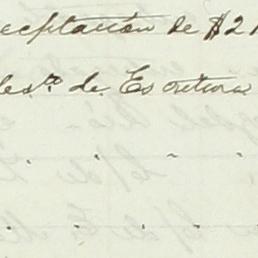 eceptación de $2
des.to de Escritura